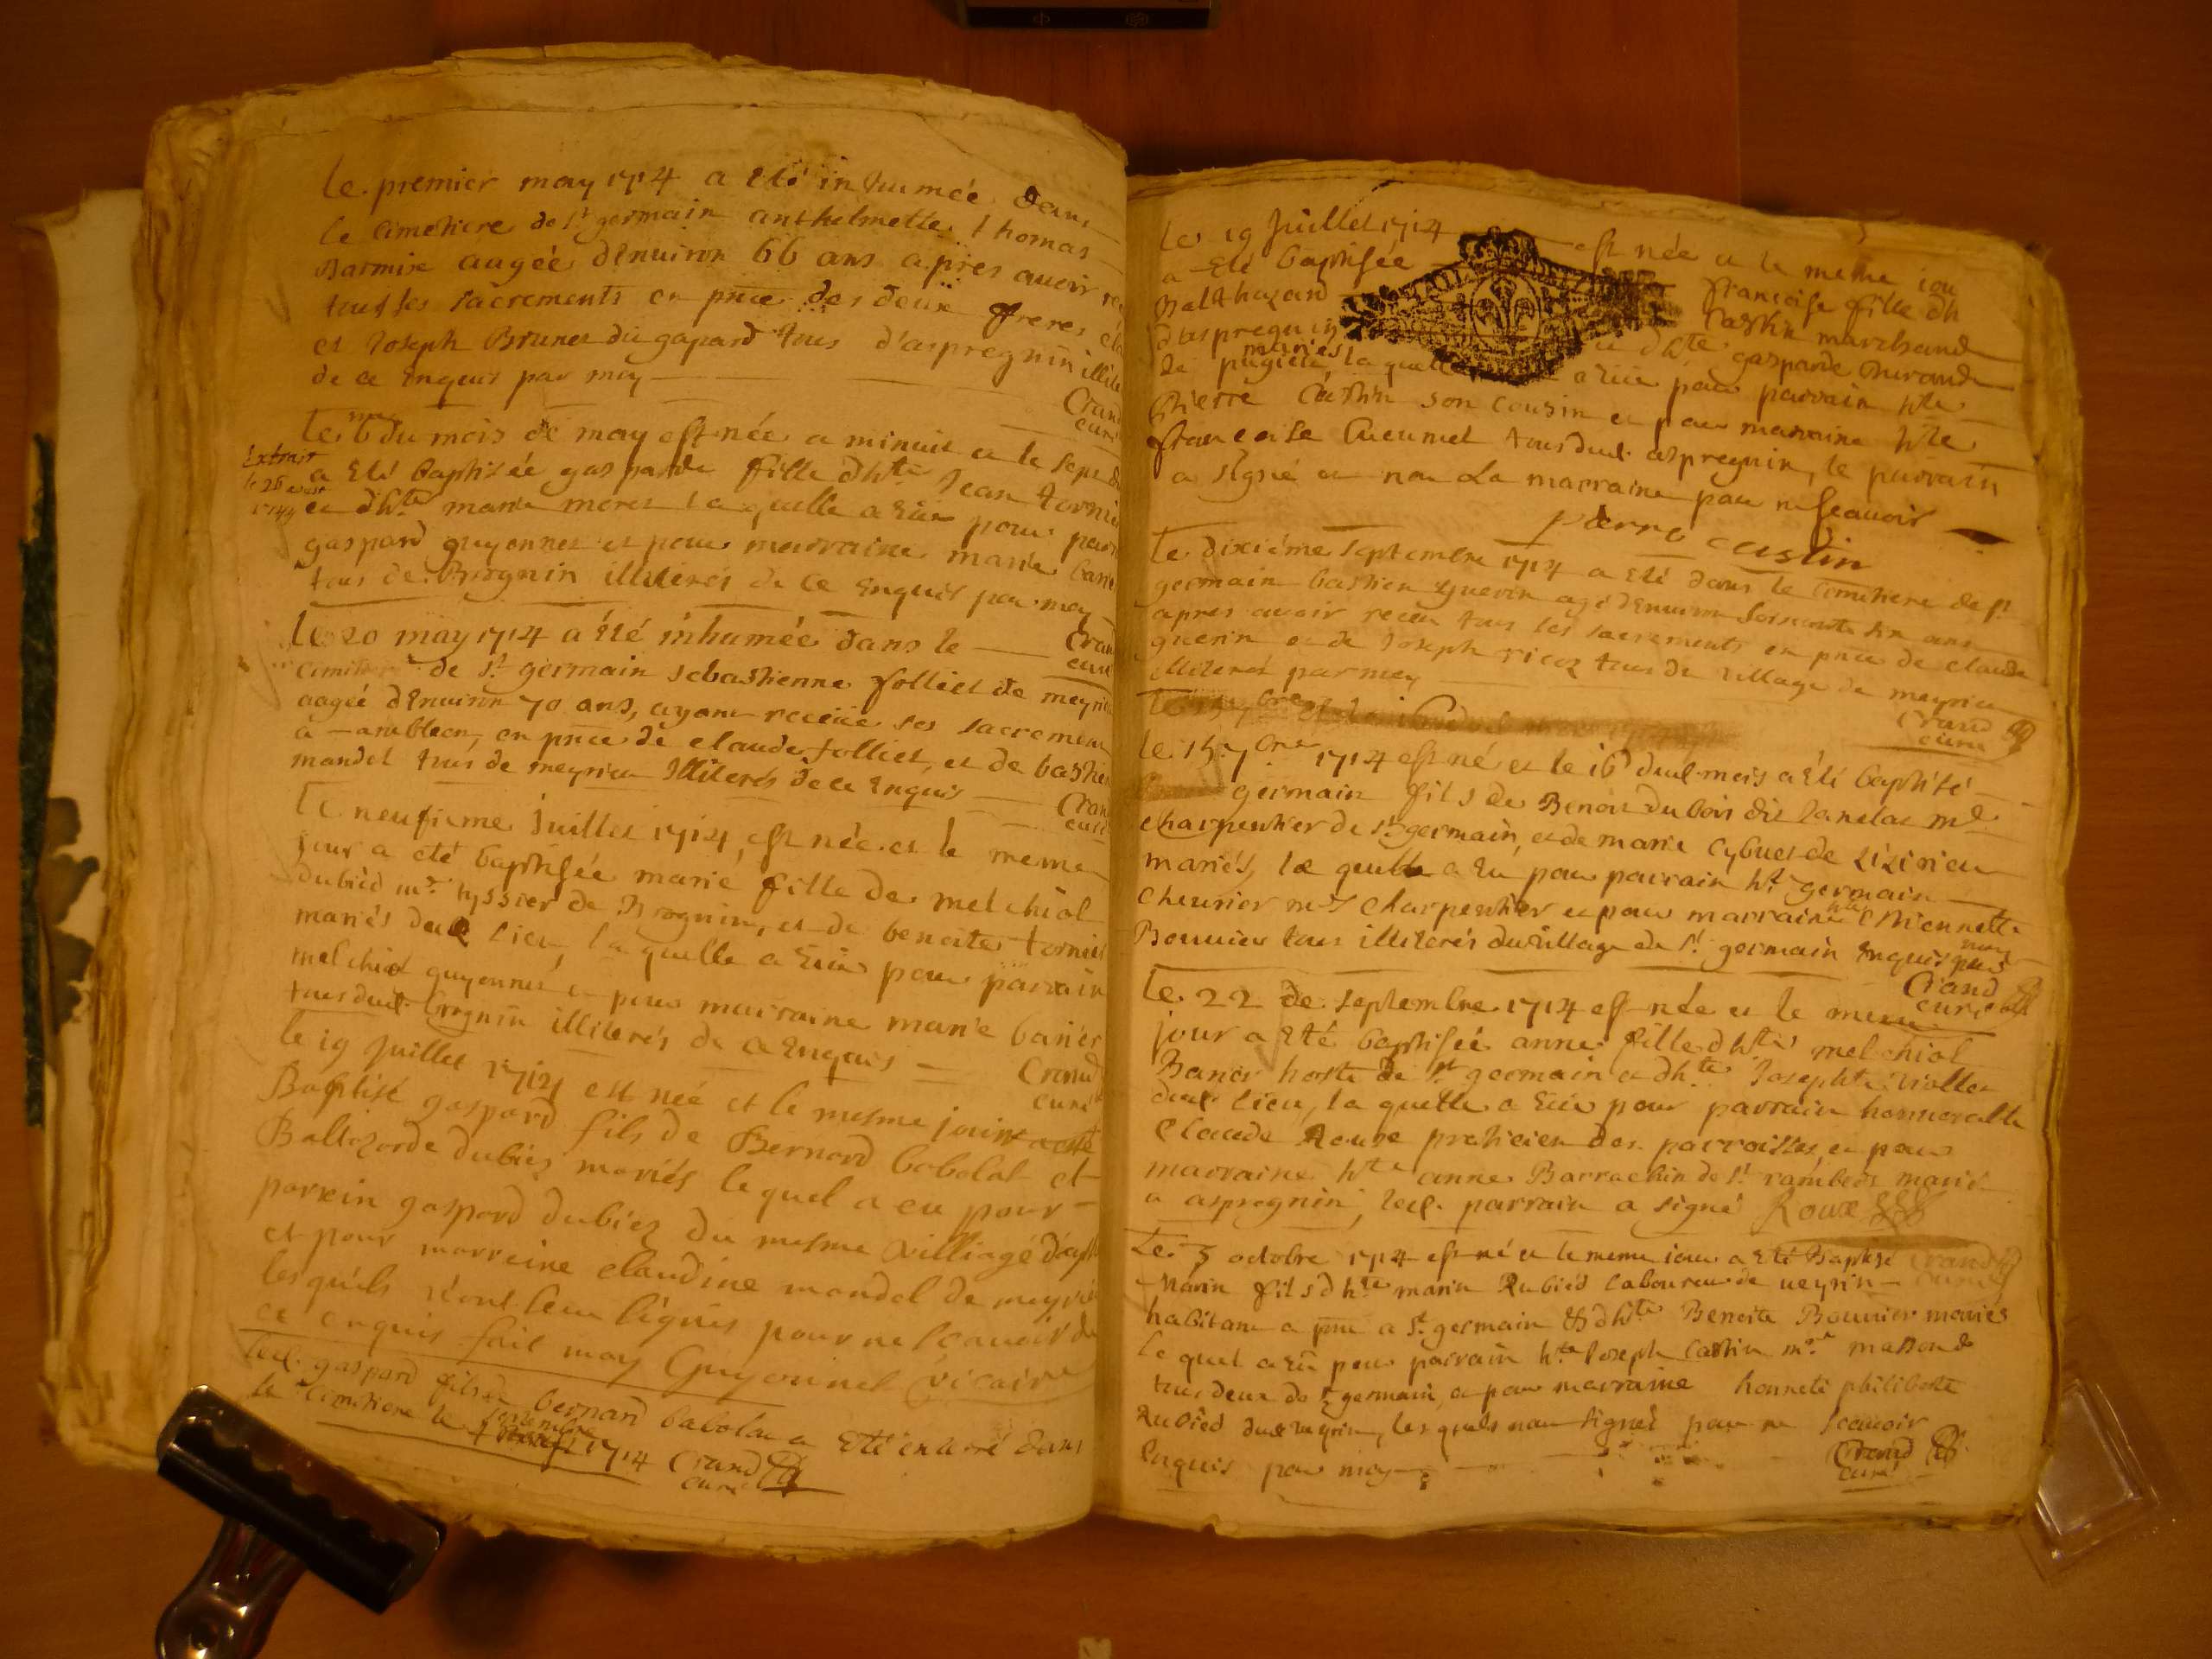 le premier may 1714 a eté inhumée dans
le cimetiere de st germain anthelmette thomas
Barmire augée denuiron 66 ans apres auoir re
tous ses sacrements en pnce des deux freres
et Joseph Brunet du gapard tous d'aspregnin illite
de ce enquis par moy
Crand
curé
le 6me du mois de may est née a minuit et le sept du
a eté baptisée gasparde fille dhte Jean tornier
Extrait
le 26 aoust
1749
et dhte marie moret la quelle a eüe pour parr
gaspard guyonnet et pour marraine marie banet
tous de Brognin illiterés de ce enquis par moy
Crand
curé
le 20 may 1714 a été inhumée dans le
cimitiere de st germain sebastienne folliet de meyrieu
aagée denuiron 70 ans, ayant receüe ses sacrements
a ambleon, en pnce de claude folliet, et de bastien
mandet tous de meyrieu illiterés de ce enquis
Crand
curé
le neufieme Juillet 1714, est née et le meme
jour a eté baptisée marie fille de melchiol
dubied mr tyssier de Brognin, et de benoite tornier
mariés duel lieu, la quelle a eüe pour parrain
melchiol guyonnet et pour marraine marie banet
tous duel Brognin illiterés de ce enquis
Crand
curé
le 19 Juillet 1714 est né et le mesme jour a esté
Baptisé gaspard fils de Bernard babolat et
Baltazarde dubiez mariés lequel a eu pour
parrein gaspard dubiez du mesme villiage d'asp
et pour marreine claudine mandel de meyrieu
lesquels n'ont leur signés pour ne scauoir de
ce enquis fait moy Guyonnet vicaire
led. gaspard fils de bernard babolat a eté enterré dans
le cimitiere le septembre 1714 Crand
curé
le 19 Juillet 1714 est née et le meme iour
a eté baptisée francoise fille dh
Balthazard castin marchand
d'aspregnin et dhte gasparde Durand
de pugieu mariés, la quelle a eüe pour parrain hte
Pierre Castin son cousin et pour marraine hte
francoise Cueumet tous duel aspregnin, le parrain
a signé et non la marraine pour ne scauoir
pierre castin
le dixiéme septembre 1714 a eté dans le cimitiere de st
germain bastien guerin agé denuiron soissante six ans
apres auoir receu tous les sacrements en pnce de claude
guerin et de Joseph ricoz tous du village de meyrieu
illiterés par moy
Crand
curé
le 15 7bre 1714 est né et le 16 duel mois a eté baptisé
germain fils de Benoit dubois dit Janelas mr
charpentier de st germain, et de marie cybuet de Zizirieu
mariés, le quelle a eu pour parrain ht germain
cheurier mr charpentier et pour marraine hte etiennette
Bouuier tous illiterés du uillage de st germain enquis par moy
Crand
curé
le 22 de septembre 1714 est née et le meme
jour a eté baptisée anne fille dhte melchiol
Banet hoste de st germain et dhte Josephte violler
duel lieu, la quelle a eüe pour parrain honnorable
claude Roux praticien des parroisses, et pour
marraine hte anne Barrachin de st rambert, marié
a aspregnin, led. parrain a signé Roux
le 3 octobre 1714 est né et le meme iour a eté Baptisé
Crand
curé
marin fils dhte marin Rubied laboureur de ueyrin
habitant a pnt a st germain et dhte Benoite Bouuier mariés
le quel a eü pour parrain hte Joseph Castin mr masson de
tous deux de st germain, et pour marraine honneté philiberte
Rubied duel ueyrin, les quels n'ont signés pour ne scauoir
Enquis par moy
Crand
curé